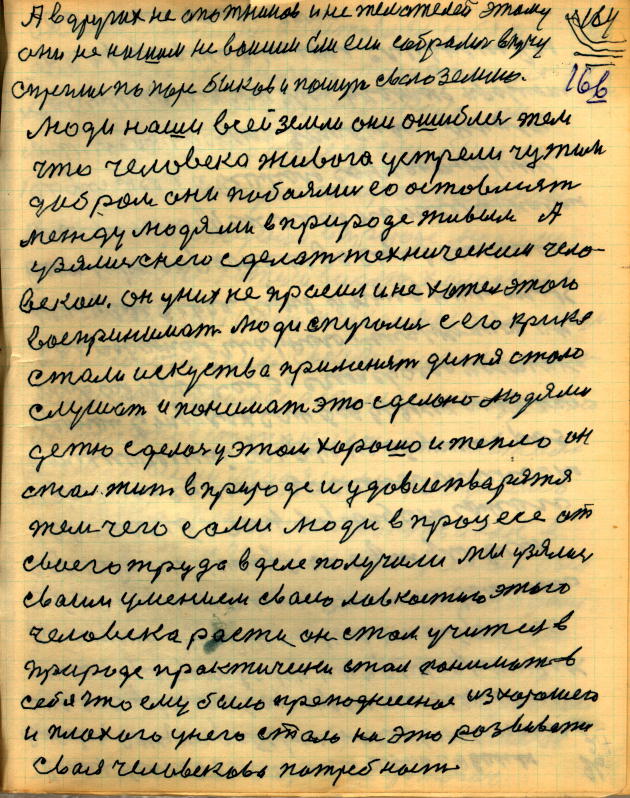 А в других не охотников и не желателей этому
они не нашим не вашим
спрегли по паре быков и пошли свою землю.
164
16б
Люди наши всей земли они ошиблис тем
что человека живога устрели чужим
добром они побоялис его оставлят
между людями в природе живым А
узялис с него сделат техническим чело-
веком. он у них не просил и не хотел этого
воспринимат люди спугалис с его крика
стали искуства применят дитя стало
слушат и понимат это сделано людями
детю сделал у этом хорошо и тепло он
стал жит в природе и удовлетварятя
тем чего сами люди в процесе от
своего труда в деле получили мы узялис
своим умением своею ловкостию этого
человека расти он стал учится в
природе практически стал понимат в
себя что ему было преподнесеное из хорошего
и плохого у него стало на это розвивати
своя человекова потребност